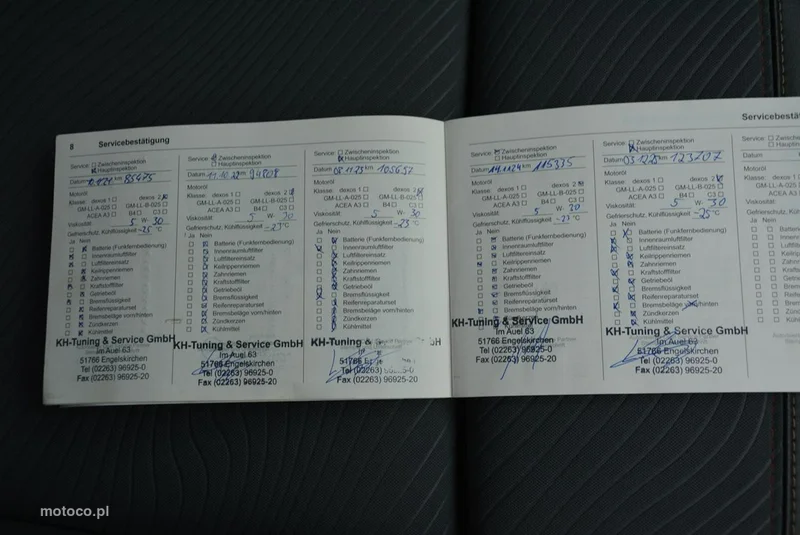 8 Servicebestätigung
Service: Zwischeninspektion
Hauptinspektion
Datum km 85475
Motoröl
Klasse: dexos 1 dexos 2
GM-LL-A-025 GM-LL-B-025
ACEA A3 B4 C3
Viskosität 5 W- 30
Gefrierschutz, Kühlflüssigkeit -25 °C
Ja Nein
Batterie (Funkfernbedienung)
Innenraumluftfilter
Luftfiltereinsatz
Keilrippenriemen
Zahnriemen
Kraftstofffilter
Getriebeöl
Bremsflüssigkeit
Reifenreparaturset
Bremsbeläge vorn/hinten
Zündkerzen
Kühlmittel
KH-Tuning & Service GmbH
Im Auel 63
51766 Engelskirchen
Tel (02263) 96925-0
Fax (02263) 96925-20
Service: Zwischeninspektion
Hauptinspektion
Datum km 94808
Motoröl
Klasse: dexos 1 dexos 2
GM-LL-A-025 GM-LL-B-025
ACEA A3 B4 C3
Viskosität 5 W- 30
Gefrierschutz, Kühlflüssigkeit -23 °C
Ja Nein
Batterie (Funkfernbedienung)
Innenraumluftfilter
Luftfiltereinsatz
Keilrippenriemen
Zahnriemen
Kraftstofffilter
Getriebeöl
Bremsflüssigkeit
Reifenreparaturset
Bremsbeläge vorn/hinten
Zündkerzen
Kühlmittel
KH-Tuning & Service GmbH
Im Auel 63
51766 Engelskirchen
Tel (02263) 96925-0
Fax (02263) 96925-20
Service: Zwischeninspektion
Hauptinspektion
Datum 08.11.23 km 105657
Motoröl
Klasse: dexos 1 dexos 2
GM-LL-A-025 GM-LL-B-025
ACEA A3 B4 C3
Viskosität 5 W- 30
Gefrierschutz, Kühlflüssigkeit -23 °C
Ja Nein
Batterie (Funkfernbedienung)
Innenraumluftfilter
Luftfiltereinsatz
Keilrippenriemen
Zahnriemen
Kraftstofffilter
Getriebeöl
Bremsflüssigkeit
Reifenreparaturset
Bremsbeläge vorn/hinten
Zündkerzen
Kühlmittel
KH-Tuning & Service
51766
Tel
Fax (02263) 96925-20
Service: Zwischeninspektion
Hauptinspektion
Datum 14.11.24 km 115335
Motoröl
Klasse: dexos 1 dexos 2
GM-LL-A-025 GM-LL-B-025
ACEA A3 B4 C3
Viskosität 5 W- 30
Gefrierschutz, Kühlflüssigkeit -23 °C
Ja Nein
Batterie (Funkfernbedienung)
Innenraumluftfilter
Luftfiltereinsatz
Keilrippenriemen
Zahnriemen
Kraftstofffilter
Getriebeöl
Bremsflüssigkeit
Reifenreparaturset
Bremsbeläge vorn/hinten
KH-Tuning & Service GmbH
Im Auel 63
51766 Engelskirchen
Tel (02263) 96925-0
Fax (02263) 96925-20
Servicebestä
Service: Zwischeninspektion
Hauptinspektion
Datum 03.12.25 km 123707
Motoröl
Klasse: dexos 1 dexos 2
GM-LL-A-025 GM-LL-B-025
ACEA A3 B4 C3
Viskosität 5 W- 30
Gefrierschutz, Kühlflüssigkeit -25 °C
Ja Nein
Batterie (Funkfernbedienung)
Innenraumluftfilter
Luftfiltereinsatz
Keilrippenriemen
Zahnriemen
Kraftstofffilter
Getriebeöl
Bremsflüssigkeit
Reifenreparaturset
Bremsbeläge vorn/hinten
Zündkerzen
Kühlmittel
KH-Tuning & Service GmbH
Im Auel 63
51766 Engelskirchen
Tel (02263) 96925-0
Fax (02263) 96925-20
Service:
Datum
Motoröl
Klasse:
Viskosität
Gefriersch
Ja Nein
motoco.pl